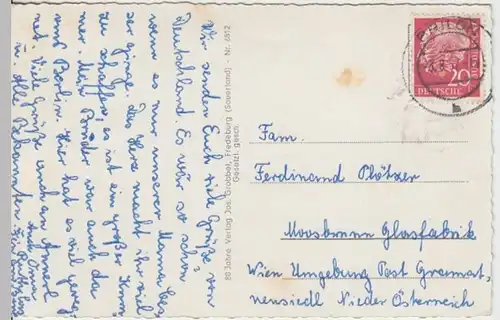 Wir senden Euch viele Grüße von
Deutschland. Es wär so schön
wenn es nur unserer Mama bes
ser ginge. Das Herz macht ihr viel
zu schaffen, es ist ein großer Kum
mer. Mein Bruder war auch da
aus Berlin. Hier hat es viel gereg
net. Viele Grüße auch an
u. alle Bekannten
80 Jahre Verlag Jos. Grobbel, Fredeburg (Sauerland) - Nr. 6512
Gesetzl. gesch.
DEUTSCHE
20
Fam.
Ferdinand Plötzer
Moosbrunn Glasfabrik
Wien Umgebung Post Gramat,
neusiedl Nieder Österreich